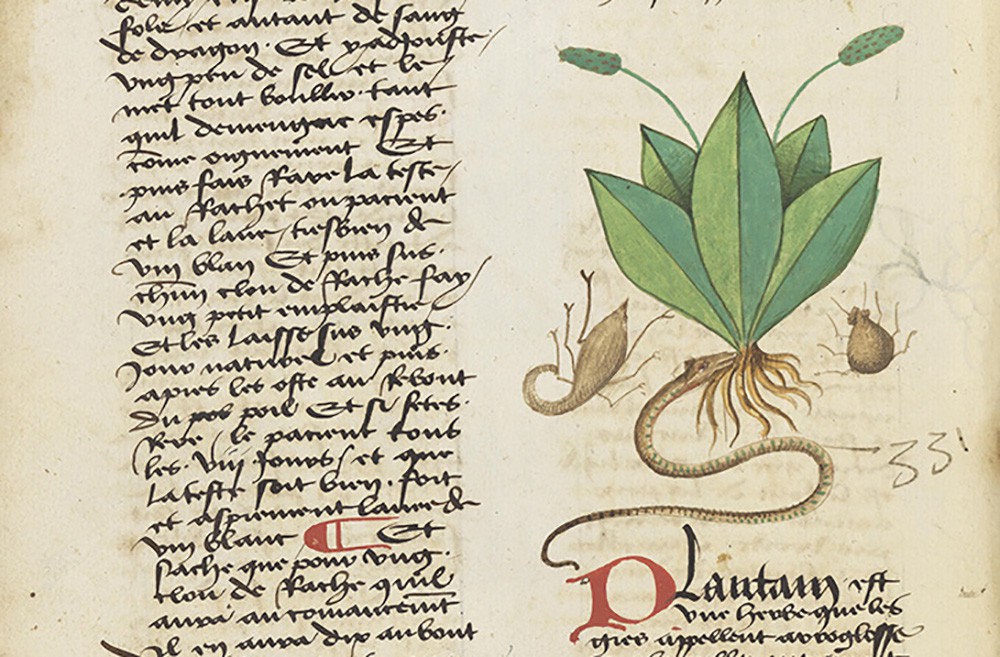 fole et autant de sang
de dragon. Et y adjouste
ung peu de sel et le
met tout boullir tant
quil demeure espes
come oignement Et
puis fais Rare la teste
au Rachet ou pacient
et la laue tresbien de
vin blan Et puis sus
chun clou de Rache fay
ung petit emplaistre
Et les laisse sus ung
Jour naturel et puis
apres les oste au Rebont
du pos poil Et si fetes
Rere le pacient tous
les viij jours et que
la teste soit bien fort
et asprement lauee de
vin blanc Et
sache que pour ung
clou de Rache quil
aura au comancemt
il en aura dix au bout
33
Plantain est
une herbe que les
gies appellent arroglosse